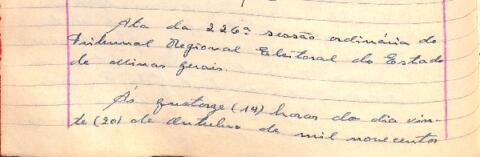 Ata da 226ª sessão ordinária do
Tribunal Regional Eleitoral do Estado
de Minas Gerais.
Ás quatorze (14) horas do dia vin-
te (20) de outubro de mil novecentos